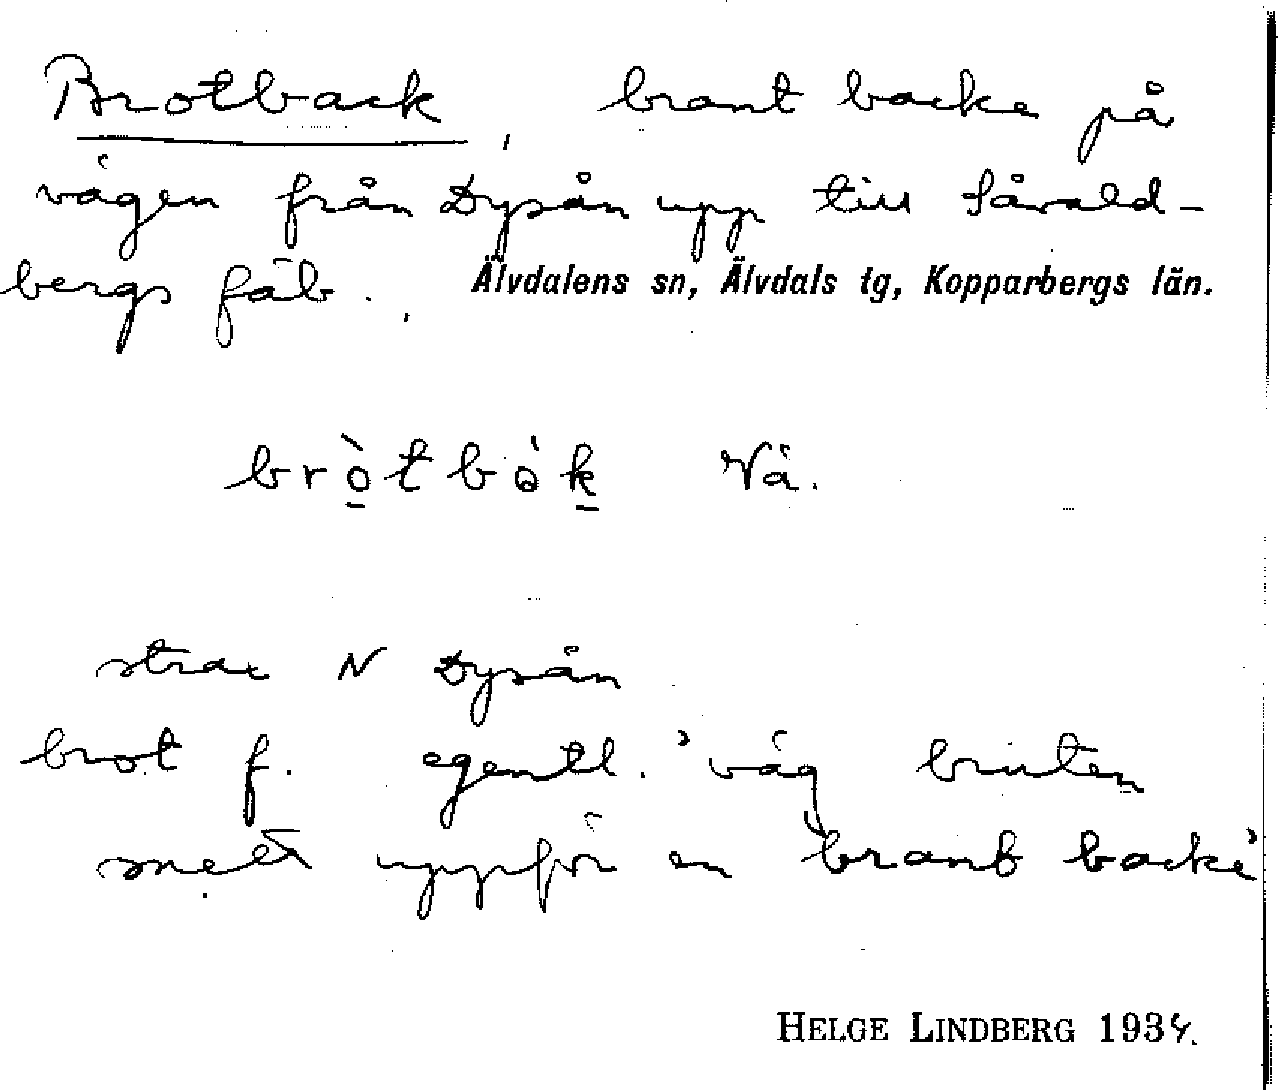 Brotback, brant backe på
vägen från Dysån upp till Såvald-
bergs fäb.
Älvdalens sn, Älvdals tg, Kopparbergs län.
brò̠tbòk̠ Vä.
strax N Dysån
brot f. egentl. 'väg bruten
snett uppför en brant backe'
HELGE LINDBERG 1934.